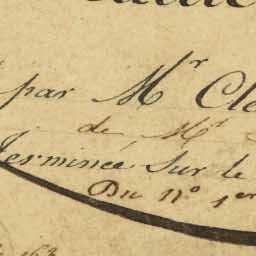 par Mr Cle
de Mr
Terminée Sur le
Du No 1er